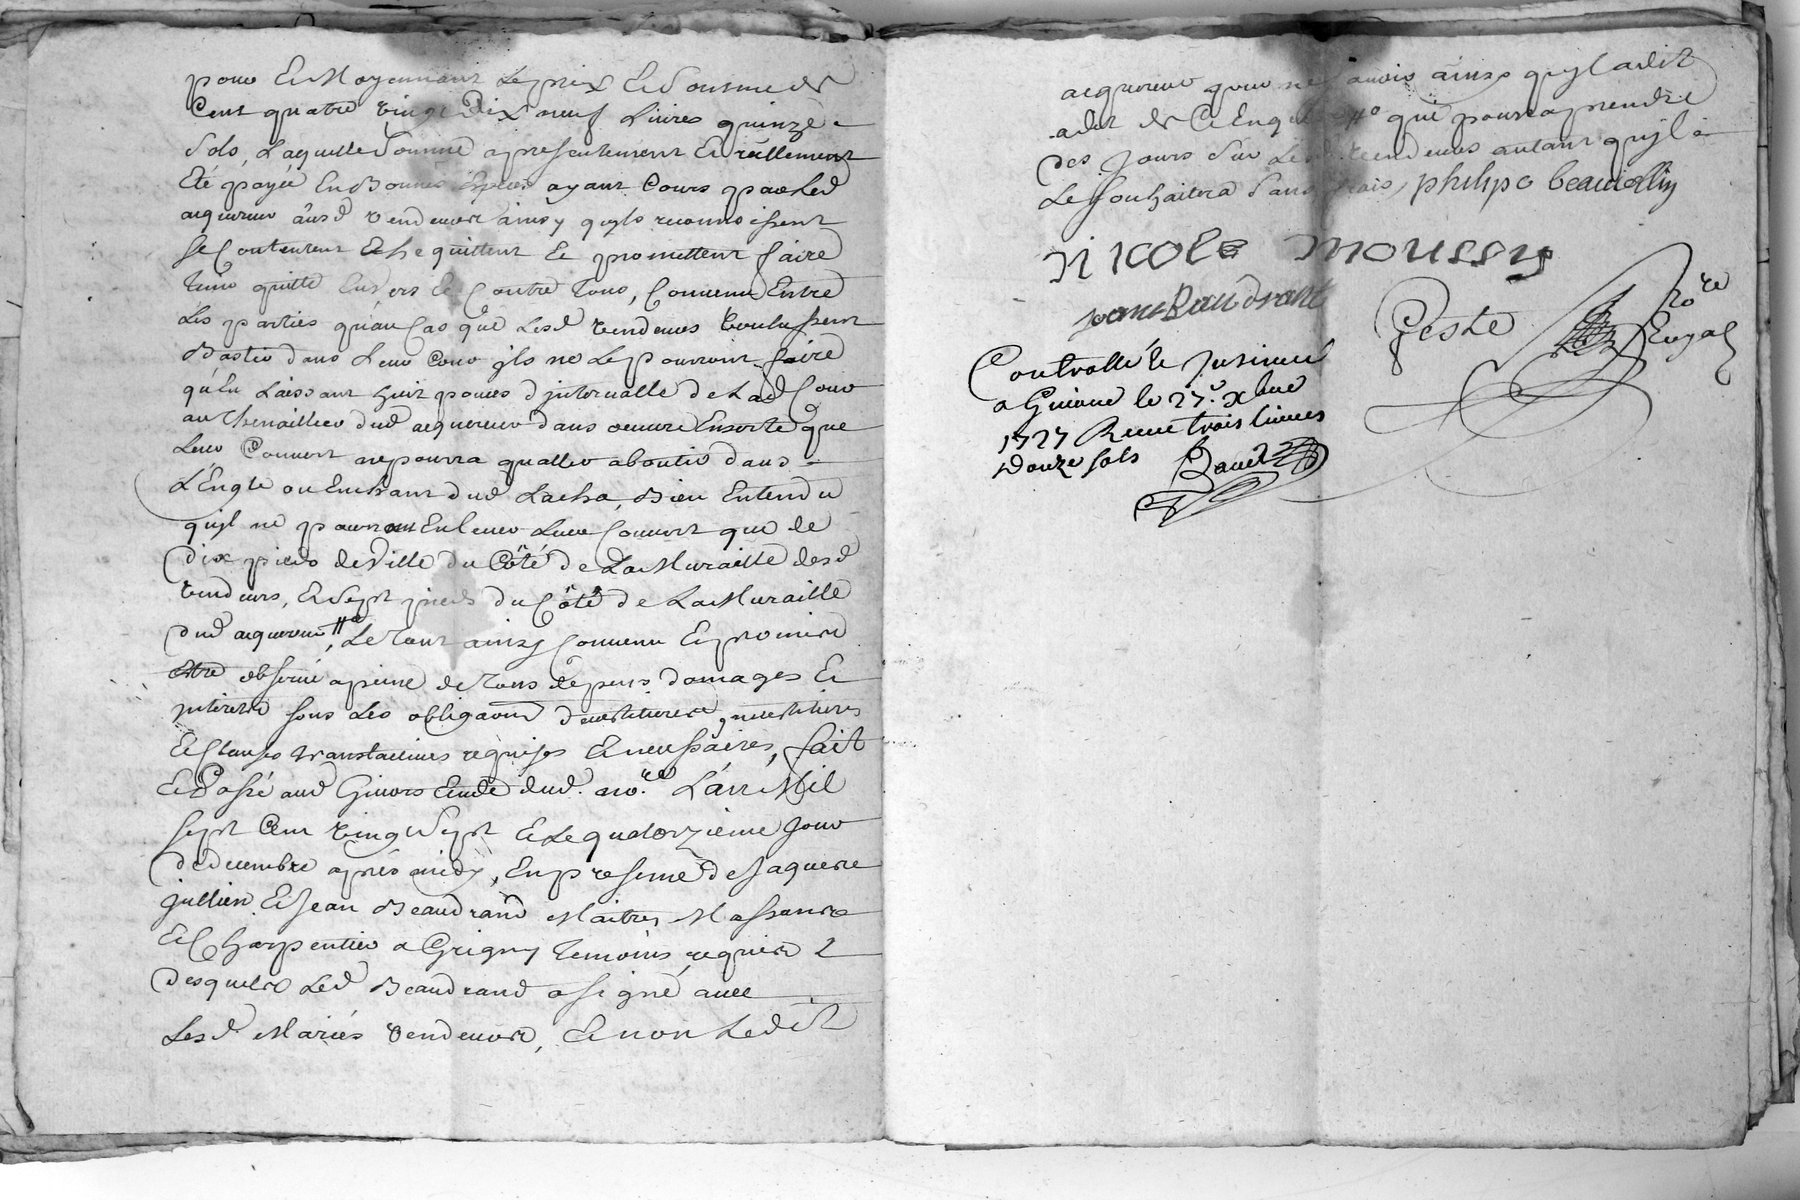 pour Et Moyennant Le prix Et Somme de
Cent quatre vingt Dix neuf Livres quinze
Sols, Laquelle Somme a presentement Et reellement
Eté payée En Bonnes Especes ayant Cours par Led
aquereur ausd vendeurs ainsy qu'ils reconnoissent
se Contentent Et Le quittent Et promettent faire
tenir quitte Envers Et Contre Tous, Convenu Entre
Les parties qu'au Cas que Lesd vendeurs voulussent
Bastir dans Leur Cour ils ne Le pourront faire
qu'En Laissant huit pouces d'intervalle de Lad Cour
au Chenaillier dud aquereur dans oeuvre Ensorte que
Leur Couvert ne pourra qualler aboutir dans
L'Engle ou Enchant dud Lacha, Bien Entendu
qu'il ne pourront Enlever Leur Couvert que de
Dix pieds de Ville du Côté de La Muraille desd
vendeurs, Et Sept pieds du Côté de La Muraille
dud aquereur, Le Tout ainsy Convenu Et promis
Etre observé a peine de Tous dépens domages Et
interets sous Les obligaons
Et Clauses translatives requises Et necessaires, fait
Et Passé aud Givors Etude dud. no.re L'an Mil
sept Cent vingt Sept Et Le quatorzieme Jour
de decembre aprés midy, En presence de Jaques
jullien Et Jean Beaudrand Maitres Massons
Et Charpentier a Grigny temoins requis
desquels Led Beaudrand a signé avec
Lesd Mariés vendeurs, Et non Ledit
aquereur pour ne scavoir ainsy qu'il a dit
qui pourra prendre
des Jours Sur Les vendeurs autant qu'il
Le souhaitera Sans frais, philipo beaudellin
Nicole moussy
Jean Baudrant
Geste no.re Royal
Controllé et Insinué
a Givors le 27.e Xbre
1727 Receu trois livres
douze sols